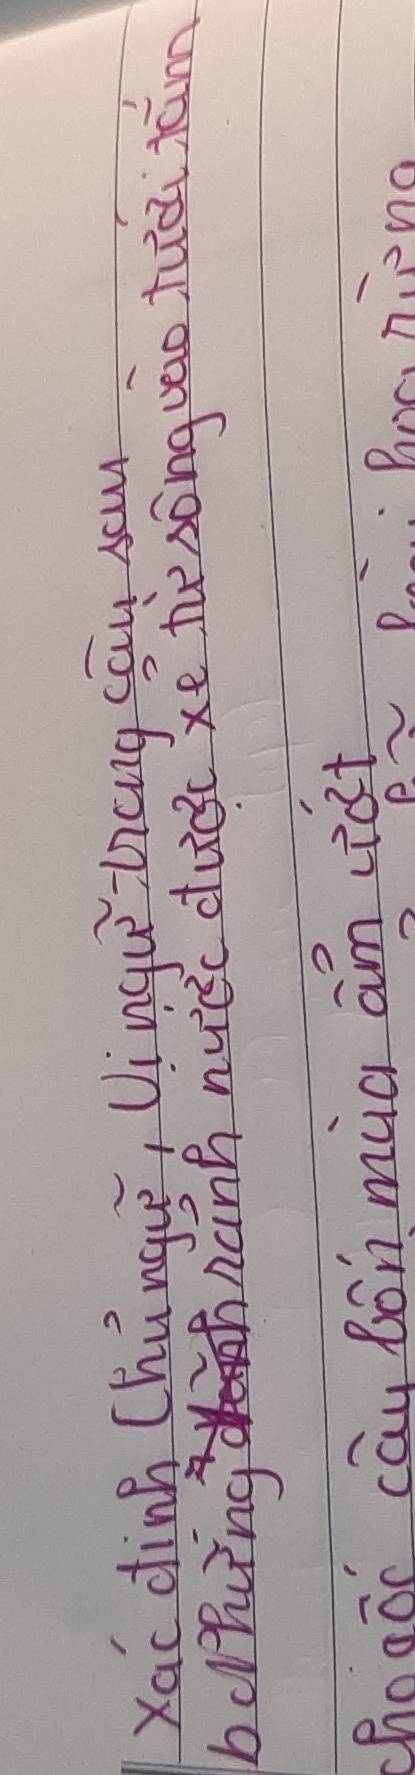 Xác định Chủ ngữ, Vị ngữ trong câu sau
b Những rảnh nước được xẻ từ sông vào tưới tắm
cho gốc cây bốn mùa ẩm ướt